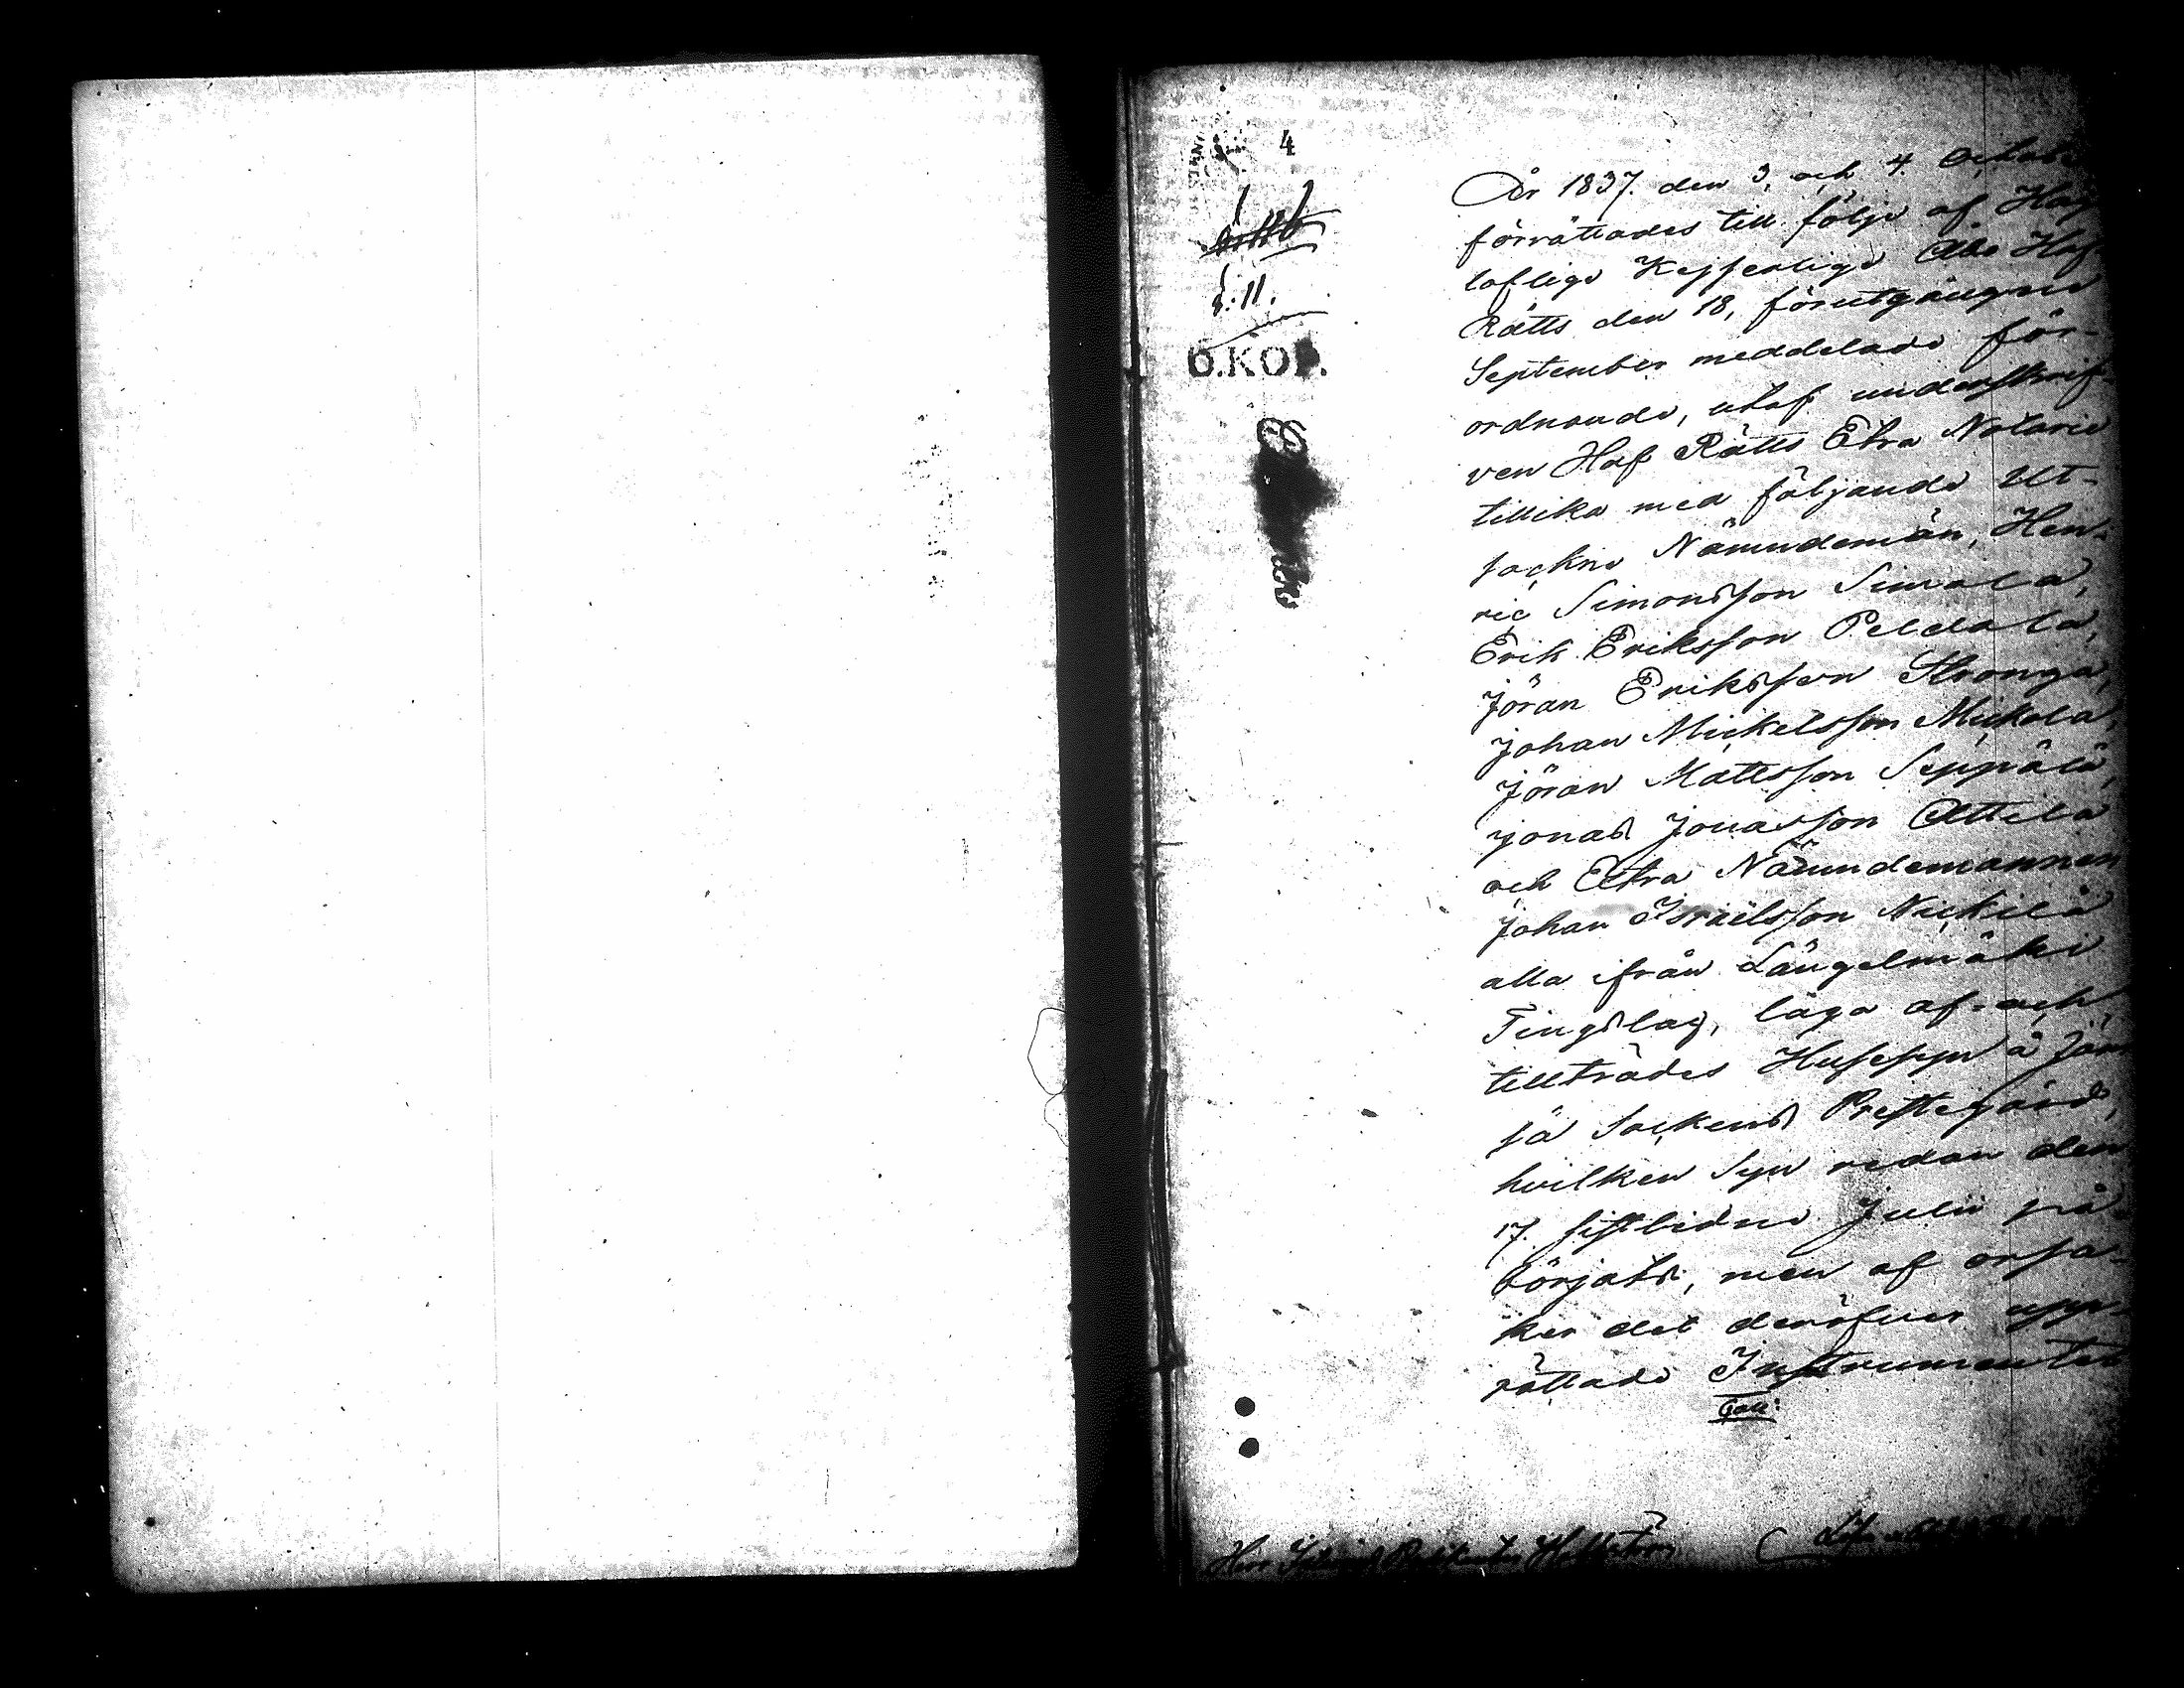 4
§. 11.
6.KOP.
År 1837. den 3, och 4. Octobe
förrättades till följe af Hög
loflige Kejserlige Åbo Hof
Rätts den 18, förutgångne
September meddelade för-
ordnande, utaf underskrif-
ven Hof Rätts Extra Notarie
tillika med följande Ut-
sockne Nämndemän, Hen-
ric Simonsson Simola,
Erik Eriksson Peldola,
Jöran Eriksson Stronga,
Johan Mickelsson Mickola,
Jöran Mattsson Seppälä,
Jonas Jonasson Attila
och Extra Nämndemannen
Johan Israelsson Nickilä
alla ifrån Längelmäki
Tingslag, laga af- och
tillträdes Husesyn å Jäm
sä Sockens Prestegård,
hvilken Syn redan den
17. sistlidne Julii på-
börjats, men af orsa-
ker det deröfver upp-
rättade Instrumentet
Herr